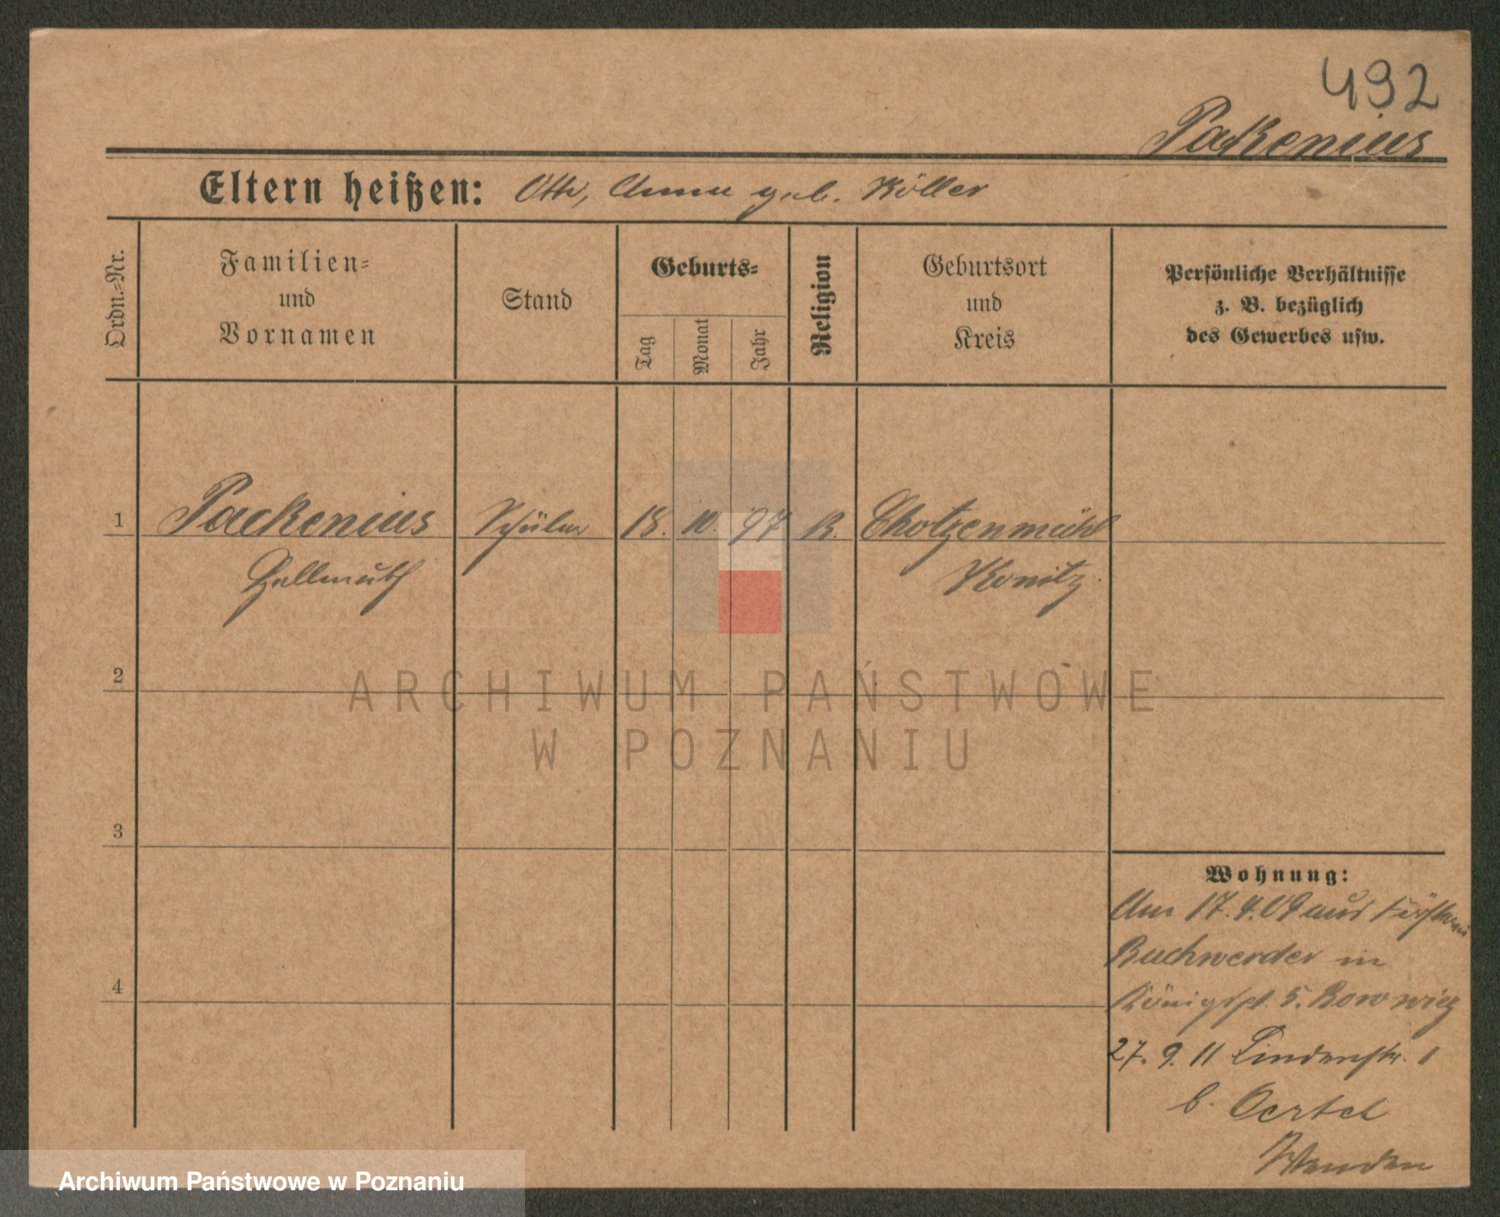 492
Pakenius
Eltern heißen: Otto, Anna geb. Köller
Ordn.-Nr.
Familien-
und
Vornamen
Stand
Geburts-
Tag
Monat
Jahr
Religion
Geburtsort
und
Kreis
Persönliche Verhältnisse
z. B. bezüglich
des Gewerbes usw.
1 Packenius Schüler 18. 10. 97 Chotzenmühl
Hellmuth Konitz.
2
3
4
Wohnung:
Am 17.4.09 aus
Buchwerder in
Königspl. 5.
27. 9. 11 Lindenstr. 1
b. Oertel
ARCHIWUM PAŃSTWOWE
W POZNANIU
Archiwum Państwowe w Poznaniu